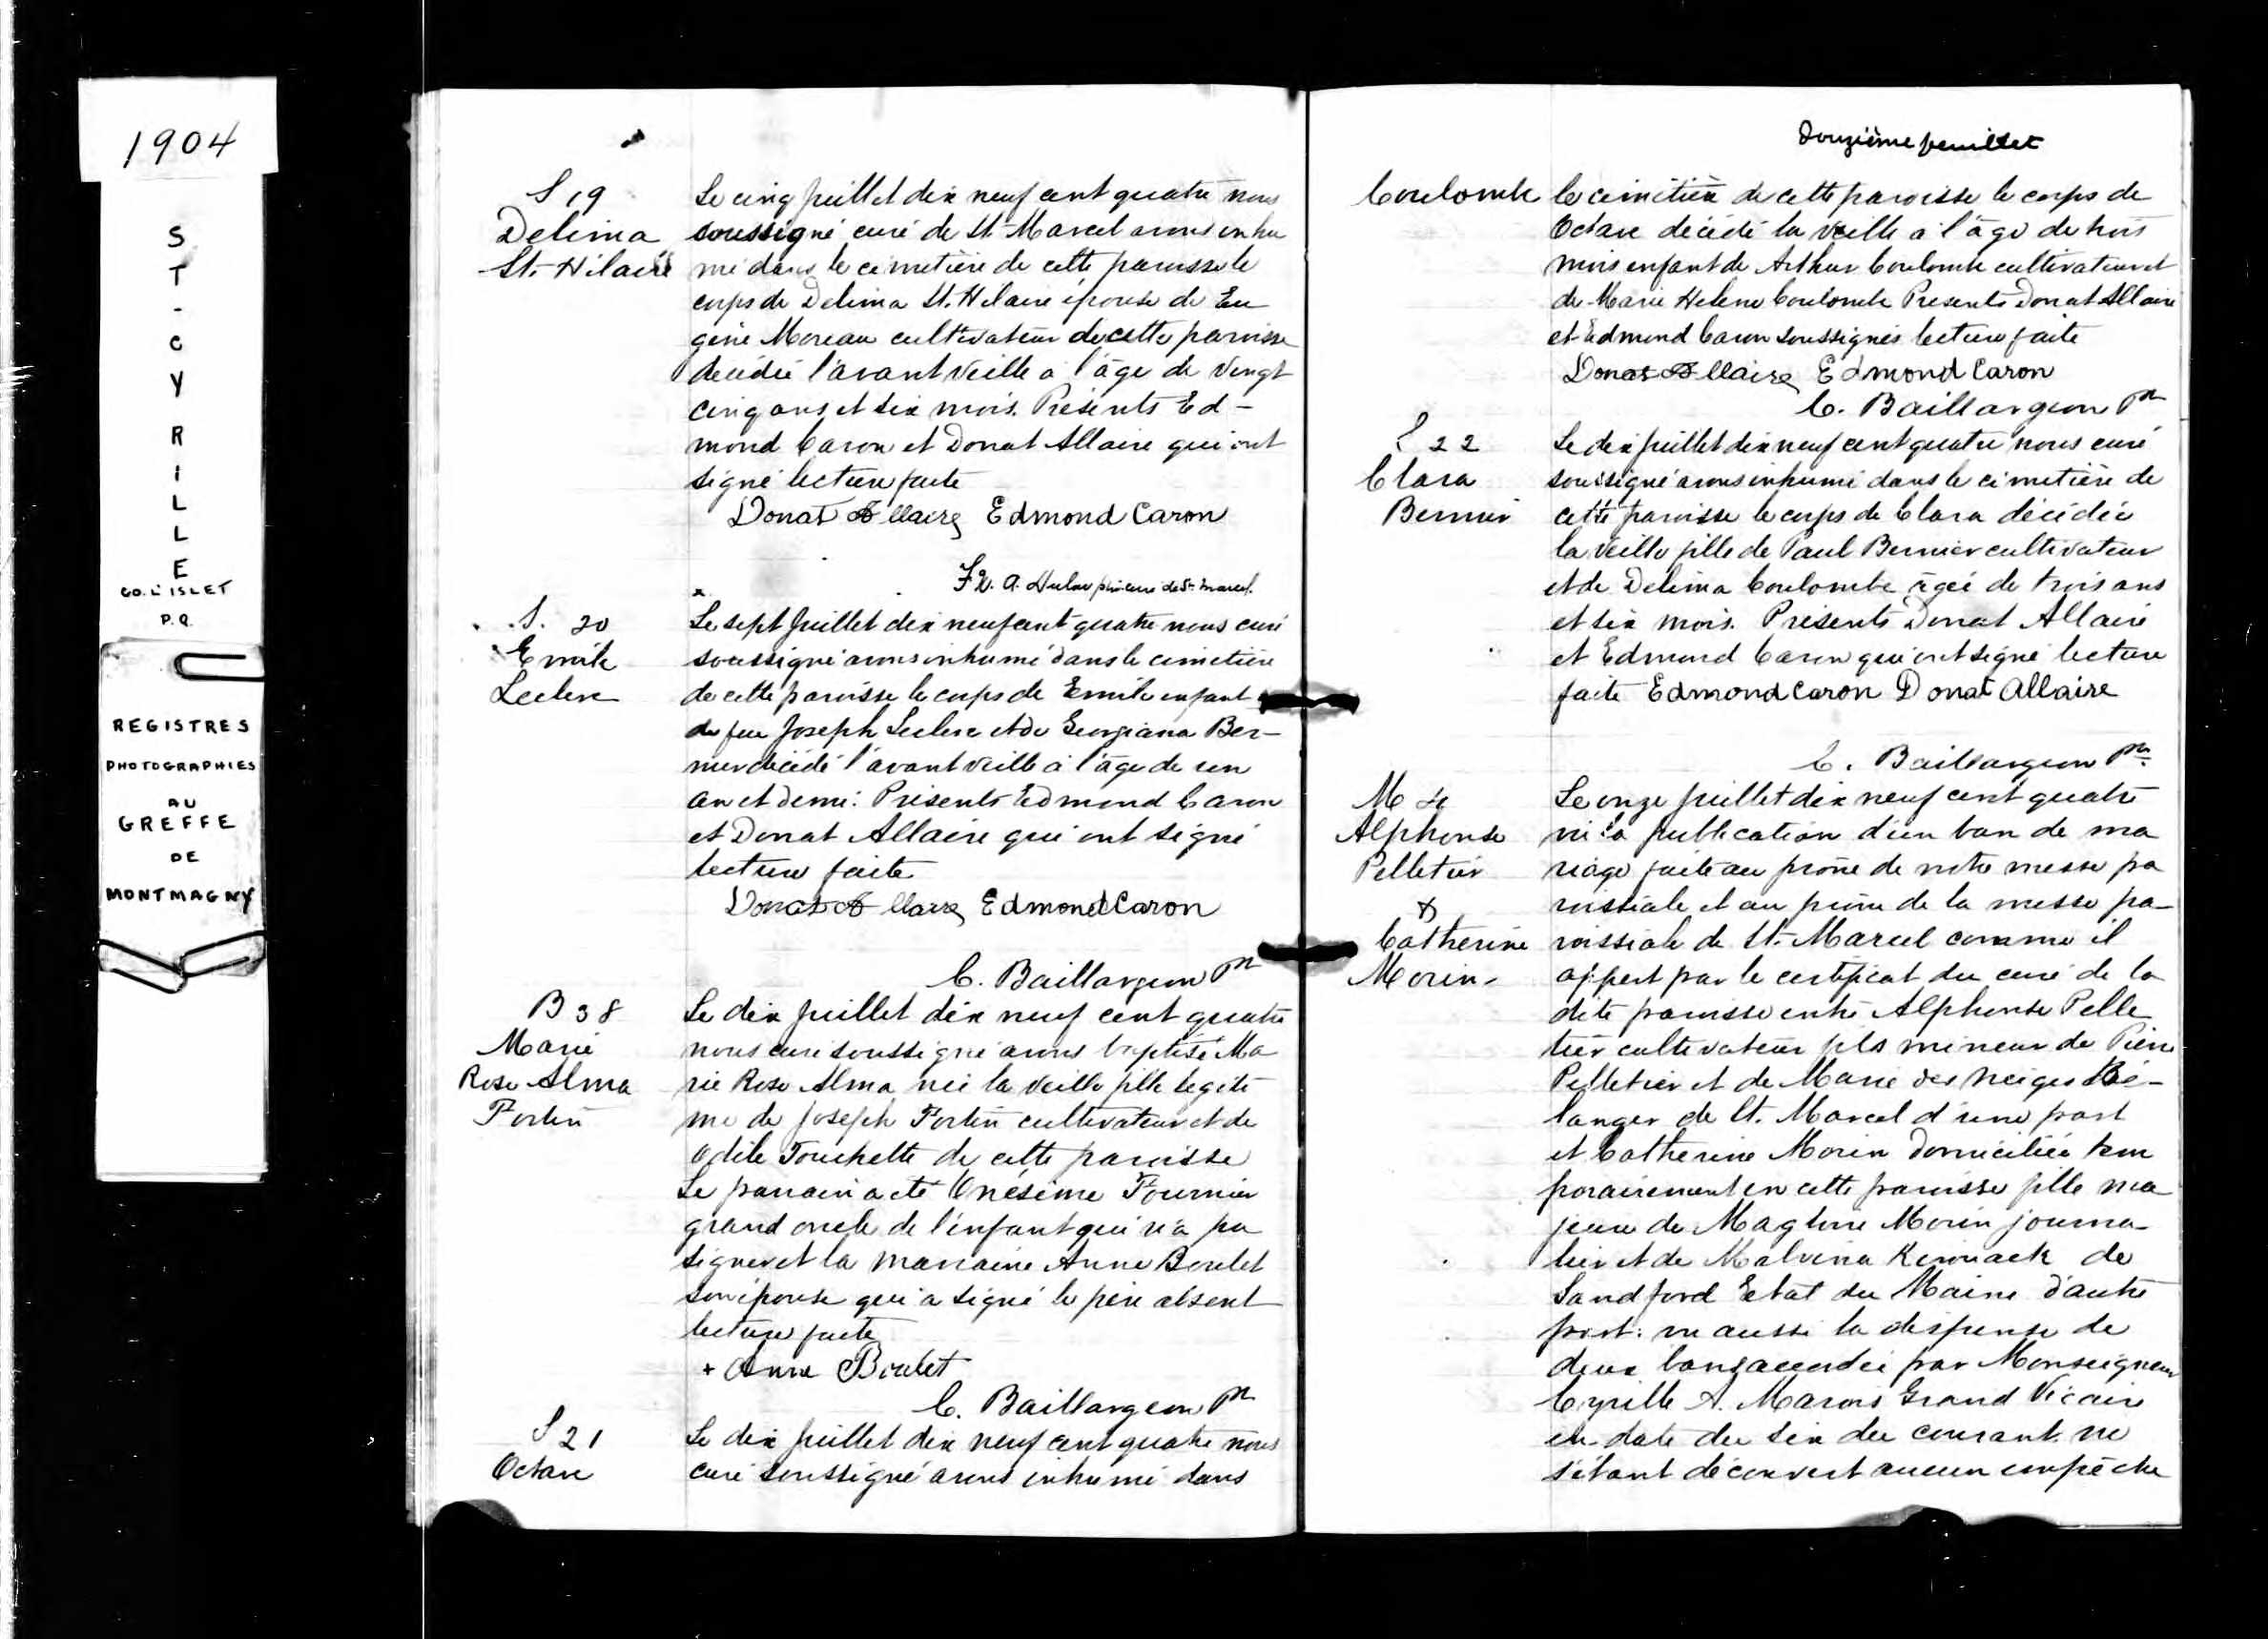 1904
ST-CYRILLE
CO. L'ISLET
P.Q.
REGISTRES
PHOTOGRAPHIES
AU
GREFFE
DE
MONTMAGNY
S 19
Delima
St. Hilaire
Le cinq juillet dix neuf cent quatre nous
soussigné curé de St. Marcel avons inhu
mé dans le cimetière de cette paroisse le
corps de Delima St. Hilaire épouse de Eu
gène Moreau cultivateur de cette paroisse
décédée l'avant veille à l'âge de vingt
cinq ans et six mois. Présents Ed-
mond Caron et Donat Allaire qui ont
signé lecture faite
Donat Allaire Edmond Caron
ptre curé de St. Marcel.
S. 20
Emile
Leclerc
Le sept juillet dix neuf cent quatre nous curé
soussigné avons inhumé dans le cimetière
de cette paroisse le corps de Emile enfant
de feu Joseph Leclerc et de Georgiana Ber-
nier décédé l'avant veille à l'âge de un
an et demi. Présents Edmond Caron
et Donat Allaire qui ont signé
lecture faite
Donat Allaire Edmond Caron
C. Baillargeon Ptre
B 38
Marie
Rose Alma
Fortin
Le dix juillet dix neuf cent quatre
nous curé soussigné avons baptisé Ma
rie Rose Alma née la veille fille légiti
me de Joseph Fortin cultivateur et de
Odile Touchette de cette paroisse
Le parrain a été Onésime Fournier
grand oncle de l'enfant qui n'a pu
signer et la marraine Anne Boulet
son épouse qui a signé le père absent
lecture faite
+ Anna Boulet
C. Baillargeon Ptre
S 21
Octave
Le dix juillet dix neuf cent quatre nous
curé soussigné avons inhumé dans
Douzième feuillet
Coulombe
le cimetière de cette paroisse le corps de
Octave décédé la veille à l'âge de trois
mois enfant de Arthur Coulombe cultivateur et
de Marie Helene Coulombe Présents Donat Allaire
et Edmond Caron soussignés lecture faite
Donat Allaire Edmond Caron
C. Baillargeon Ptre
S 22
Clara
Bernier
Le dix juillet dix neuf cent quatre nous curé
soussigné avons inhumé dans le cimetière de
cette paroisse le corps de Clara décédée
la veille fille de Paul Bernier cultivateur
et de Delima Coulombe âgée de trois ans
et six mois. Présents Donat Allaire
et Edmond Caron qui ont signé lecture
faite Edmond Caron Donat Allaire
C. Baillargeon Ptre
M 4
Alphonse
Pelletier
&
Catherine
Morin
Le onze juillet dix neuf cent quatre
vu la publication d'un ban de ma
riage faite au prône de notre messe pa
roissiale et au prône de la messe pa-
roissiale de St. Marcel comme il
appert par le certificat du curé de la
dite paroisse entre Alphonse Pelle
tier cultivateur fils mineur de Pierre
Pelletier et de Marie des Neiges Bé-
langer de St. Marcel d'une part
et Catherine Morin domiciliée tem
porairement en cette paroisse fille ma
jeure de Magloire Morin journa-
lier et de Malvina Kerouack de
Sandford Etat du Maine d'autre
part: vu aussi la dispense de
deux bans accordée par Monseigneur
Cyrille A. Marois Grand Vicaire
en date du six du courant ne
s'étant découvert aucun empêche